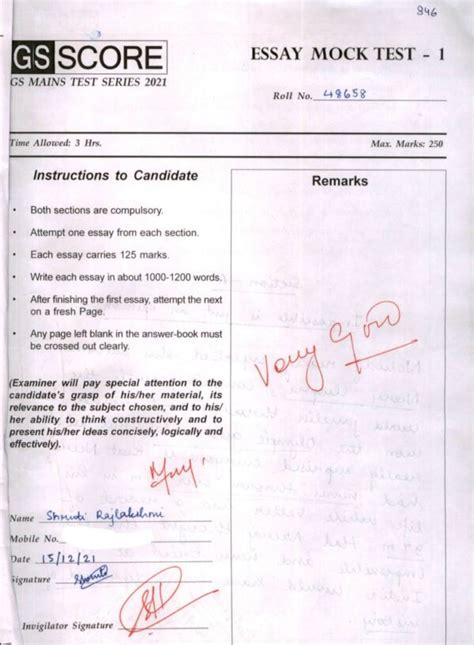 846
GS SCORE
GS MAINS TEST SERIES 2021
ESSAY MOCK TEST - 1
Roll No. 48658
Time Allowed: 3 Hrs.
Max. Marks: 250
Instructions to Candidate
• Both sections are compulsory.
• Attempt one essay from each section.
• Each essay carries 125 marks.
• Write each essay in about 1000-1200 words.
• After finishing the first essay, attempt the next
on a fresh Page.
• Any page left blank in the answer-book must
be crossed out clearly.
(Examiner will pay special attention to the
candidate's grasp of his/her material, its
relevance to the subject chosen, and to his/
her ability to think constructively and to
present his/her ideas concisely, logically and
effectively).
Name Shruti Rajlakshmi
Mobile No.
Date 15/12/21
Signature
Invigilator Signature
Remarks
Very Good